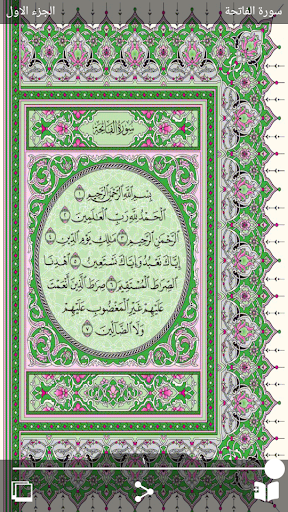 سورة الفاتحة
الجزء الاول
سُورَةُ الفَاتِحَةِ
بِسْمِ اللَّهِ الرَّحْمَٰنِ الرَّحِيمِ ١
الْحَمْدُ لِلَّهِ رَبِّ الْعَالَمِينَ ٢
الرَّحْمَٰنِ الرَّحِيمِ ٣ مَالِكِ يَوْمِ الدِّينِ ٤
إِيَّاكَ نَعْبُدُ وَإِيَّاكَ نَسْتَعِينُ ٥ اهْدِنَا
الصِّرَاطَ الْمُسْتَقِيمَ ٦ صِرَاطَ الَّذِينَ أَنْعَمْتَ
عَلَيْهِمْ غَيْرِ الْمَغْضُوبِ عَلَيْهِمْ
وَلَا الضَّالِّينَ ٧
١